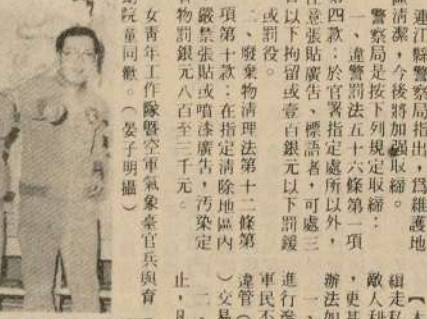 連江縣警察局指出，爲維護地
區清潔，今後將加强取締。
警察局是按下列規定取締：
一、違警罰法五十六條第一項
第四款：於官署指定處所以外，
任意張貼廣告、標語者，可處三
日以下拘留或壹百銀元以下罰鍰
或罰役。
二、廢棄物清理法第十二條第
項第十款：在指定清除地區內
嚴禁張貼或噴漆廣告，污染定
物罰銀元八百至三千元。
女靑年工作隊暨空軍氣象臺官兵與育
幼院童同歡。（晏子明攝）
【本
緝走私
敵人利
，更甚
辦法如
一、
進行
軍民不
違管（
）交易
二、
止，凡